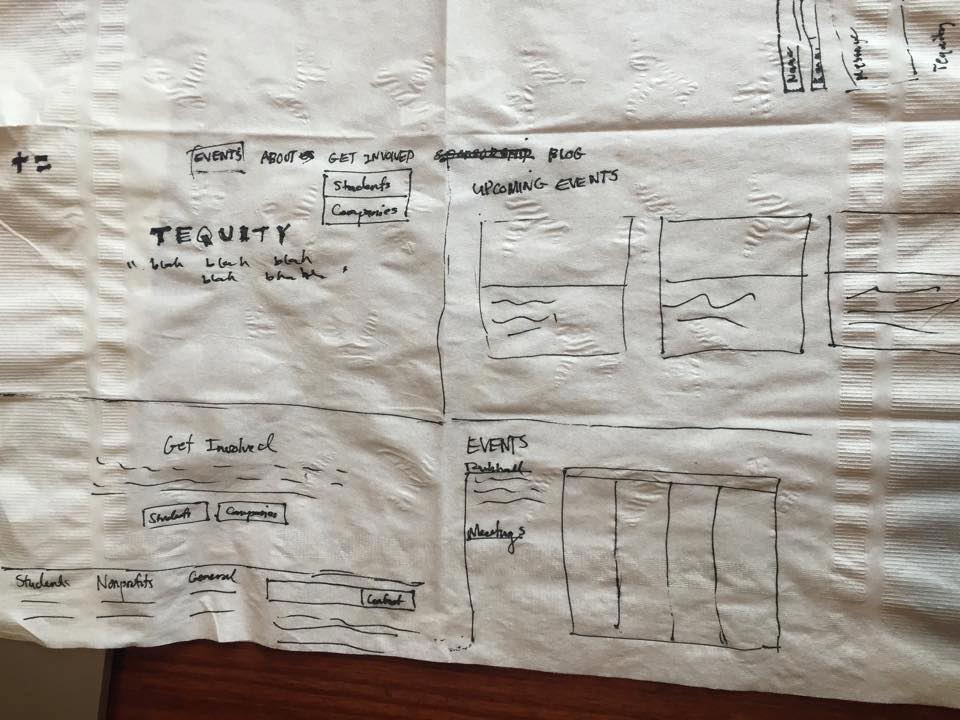 +=
EVENTS ABOUT GET INVOLVED BLOG
Students
Companies
TEQUITY
" blah blah blah
blah blah blah "
UPCOMING EVENTS
Get Involved
Students Companies
Students Nonprofits General
Contact
EVENTS
Meetings
Name
Email
Message
Tequity